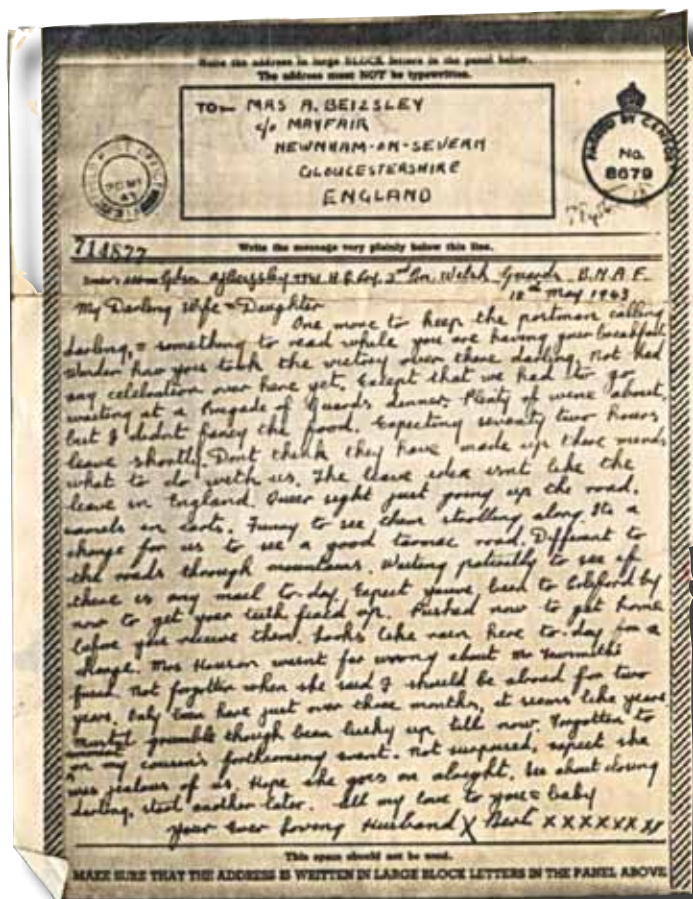 Write the address in large BLOCK letters in the panel below.
The address must NOT be typewritten.
TO— MRS A. BEIZSLEY
c/o MAYFAIR
NEWNHAM-ON-SEVERN
GLOUCESTERSHIRE
ENGLAND
PASSED BY CENSOR
No.
8679
714577
Write the message very plainly below this line.
H.Q. Coy. 3rd Bn. Welsh Guards. B.N.A.F.
18th May 1943
My Darling Wife & Daughter
One more to keep the postman calling
darling, & something to read while you are having your breakfast
Wonder how you took the victory over there darling, not had
any celebration over here yet, except that we had to go
waiting at a Brigade of Guards dinner. Plenty of wine about,
but I didnt fancy the food. Expecting seventy two hours
leave shortly. Dont think they have made up there minds
what to do with us. The leave idea isnt like the
leave in England. Queer sight just going up the road,
camels in carts. Funny to see them strolling along. Its a
change for us to see a good tarmac road. Different to
the roads through mountains. Waiting patiently to see if
there is any mail to-day. Expect youve been to Coleford by
now to get your teeth fixed up. Pushed now to get home
before you receive them. Looks like rain here to-day for a
change. Mrs wasnt far wrong about Mr
not forgotten when she said I should be abroad for two
years. Only been here just over three months, it seems like years
mustnt grumble though been lucky up till now. Forgotten
my cousin's forthcoming event. Not surprised, expect she
was jealous of us. Hope she goes on alright. closing
darling, start another later. All my love to you & baby
Your Ever Loving Husband X Bert X X X X X X X
This space should not be used.
MAKE SURE THAT THE ADDRESS IS WRITTEN IN LARGE BLOCK LETTERS IN THE PANEL ABOVE